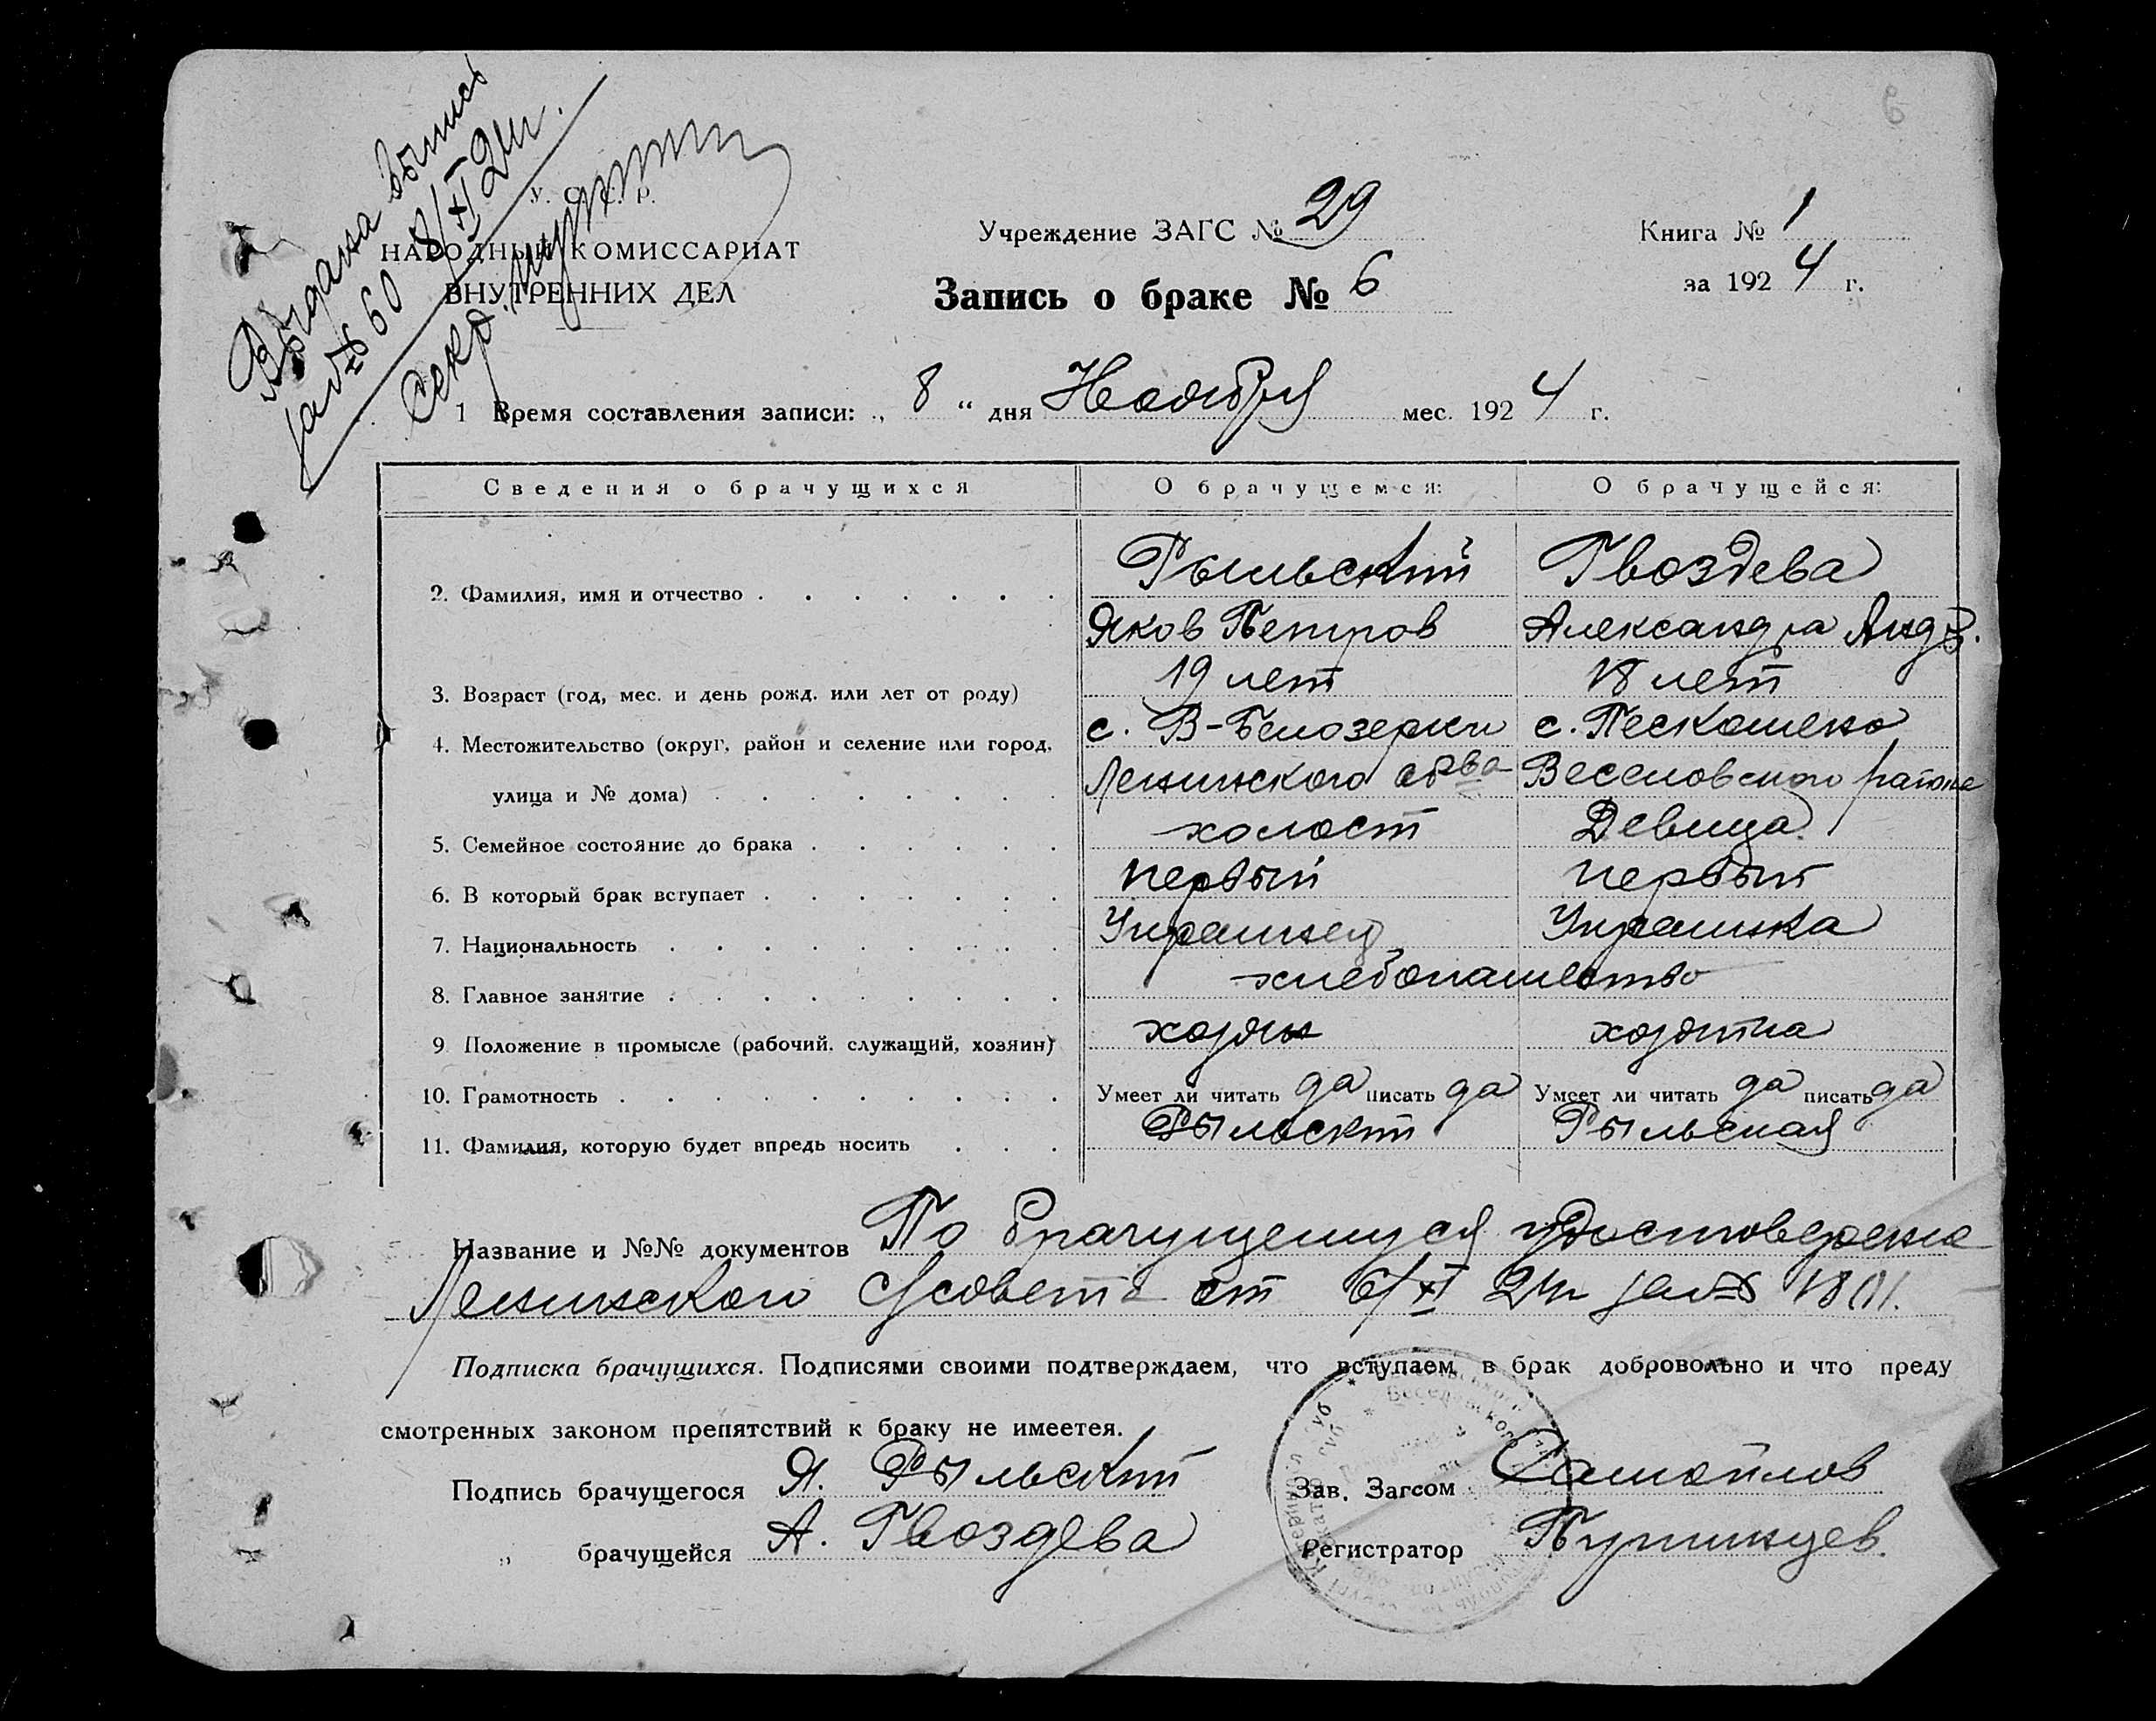 6
Выдана выпись
за № 60 8/XI 24 г.
Секр.
У. С. С. Р.
НАРОДНЫЙ КОМИССАРИАТ
ВНУТРЕННИХ ДЕЛ
Учреждение ЗАГС № 29
Книга № 1
за 1924 г.
Запись о браке № 6
1 Время составления записи: „ 8 “ дня Ноября мес. 1924 г.
Сведения о брачущихся О брачущемся: О брачущейся:
Рыльский Гвоздева
2. Фамилия, имя и отчество
Яков Петров Александра Андр.
3. Возраст (год, мес. и день рожд. или лет от роду) 19 лет 18 лет
4. Местожительство (округ, район и селение или город, с. В-Белозерки с. Пескошено
улица и № дома) Ленинского об-ва Веселовского района
5. Семейное состояние до брака холост Девица
6. В который брак вступает первый первый
7. Национальность Украинец Украинка
8. Главное занятие хлебопашество
9. Положение в промысле (рабочий, служащий, хозяин)
10. Грамотность Умеет ли читать да писать да Умеет ли читать да писать да
11. Фамилия, которую будет впредь носить Рыльский Рыльская
Название и №№ документов По брачущемуся удостоверение
Ленинского с/совета от 6/XI 24 г за № 1801.
Подписка брачущихся. Подписями своими подтверждаем, что вступаем в брак добровольно и что преду
смотренных законом препятствий к браку не имеетея.
Подпись брачущегося Я. Рыльский
Зав. Загсом Самойлов
„ брачущейся А. Гвоздева
Регистратор Путинцев